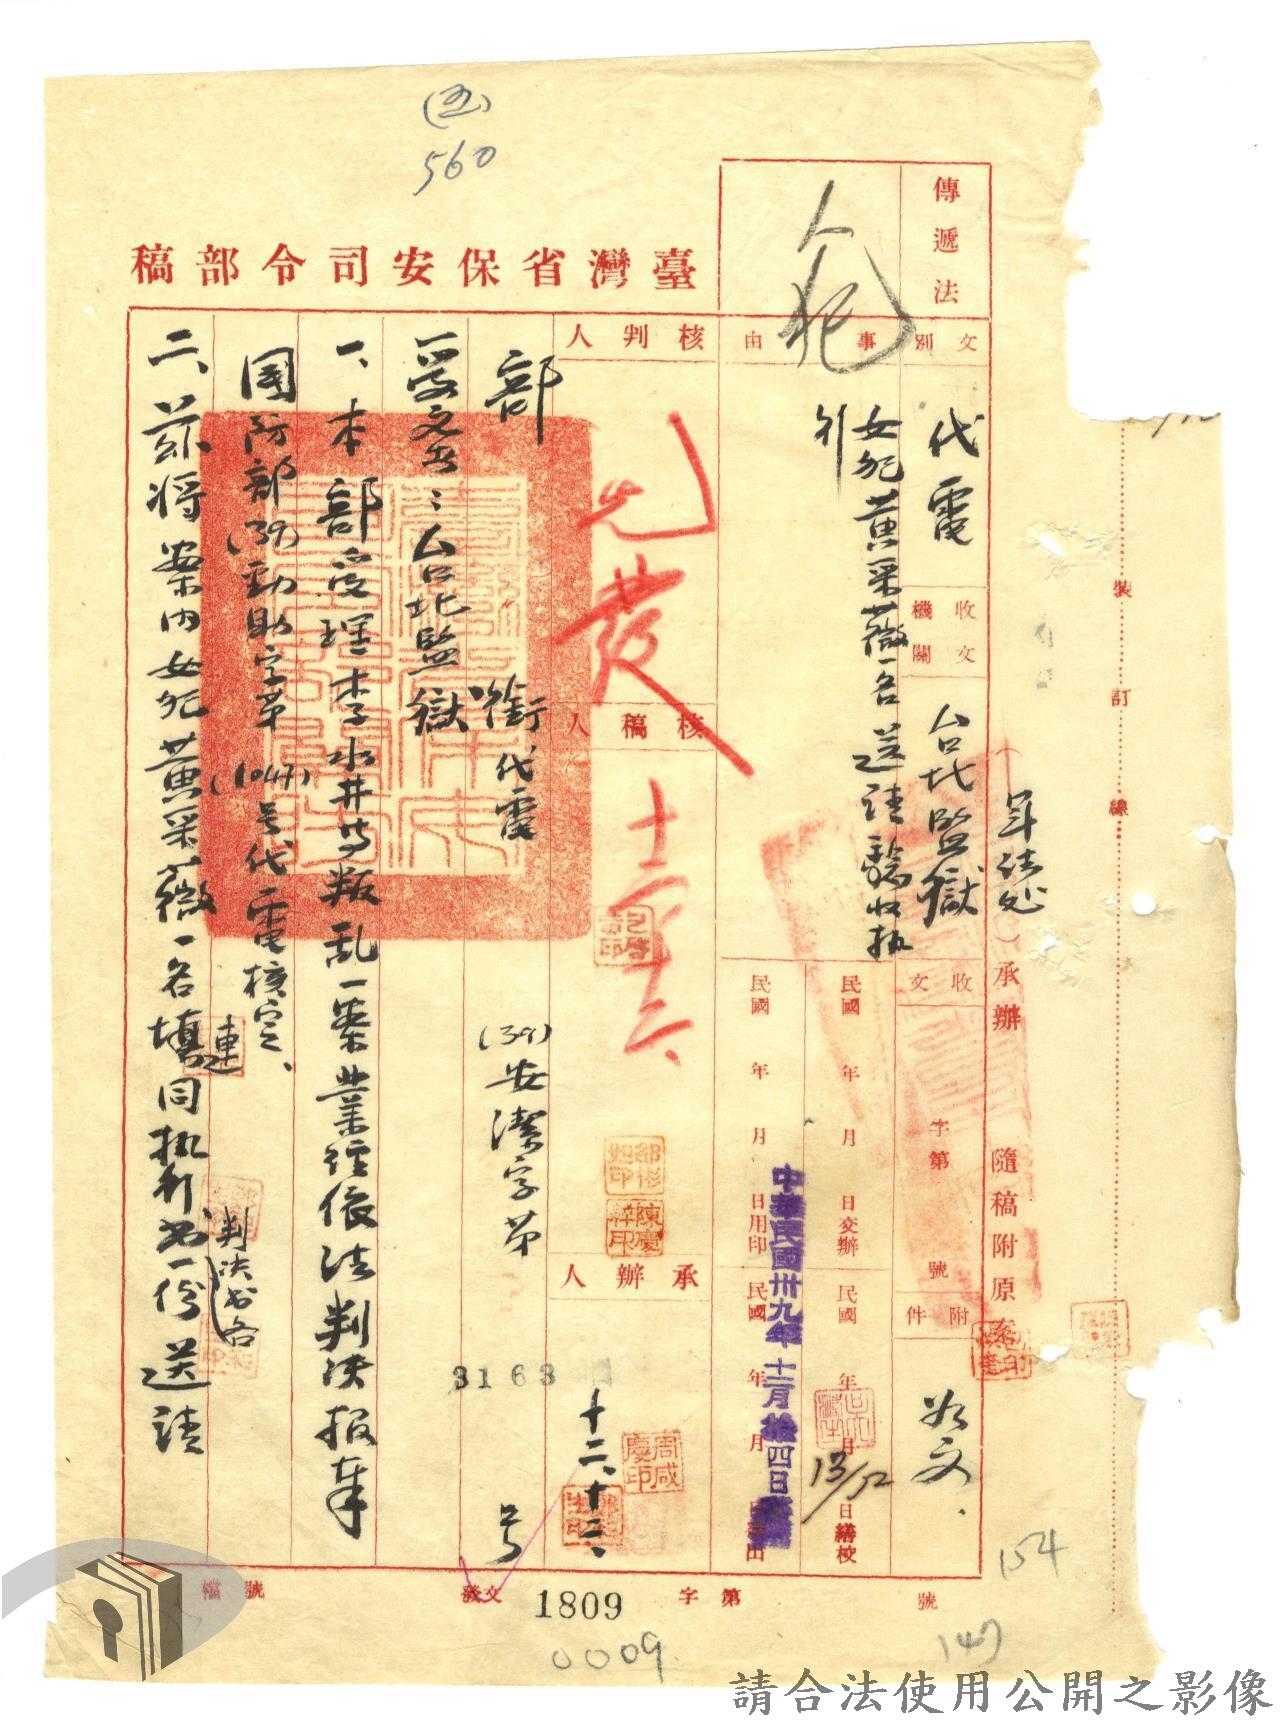 (五)
560
臺灣省保安司令部稿
傳遞法
人犯
文別
代電
收文機關
台北監獄
附件
如文
事由
女犯黃采薇一名送請驗收執行
(軍法処)承辦
隨稿附原案
收文
字第
號
民國 年 月 日交辦
民國 年 月 日繕校
13/12
民國 年 月 日用印
民國 年 月 日
中華民國卅九年十二月拾四日
核判人
先發
十二、十二、
核稿人
承辦人
十二、十二、
部 銜代電 (39)安潔字第 3163 号
一受文者:台北監獄
一、本部受理李水井等叛乱一案業經依法判決报奉
國防部(39)勁助字第(1047)号代電核定、
二、茲将案内女犯黃采薇一名填同执行书一份送請
連
判决书各
檔 號
發文 1809 字第 號
0009
154
147
裝訂線
請合法使用公開之影像